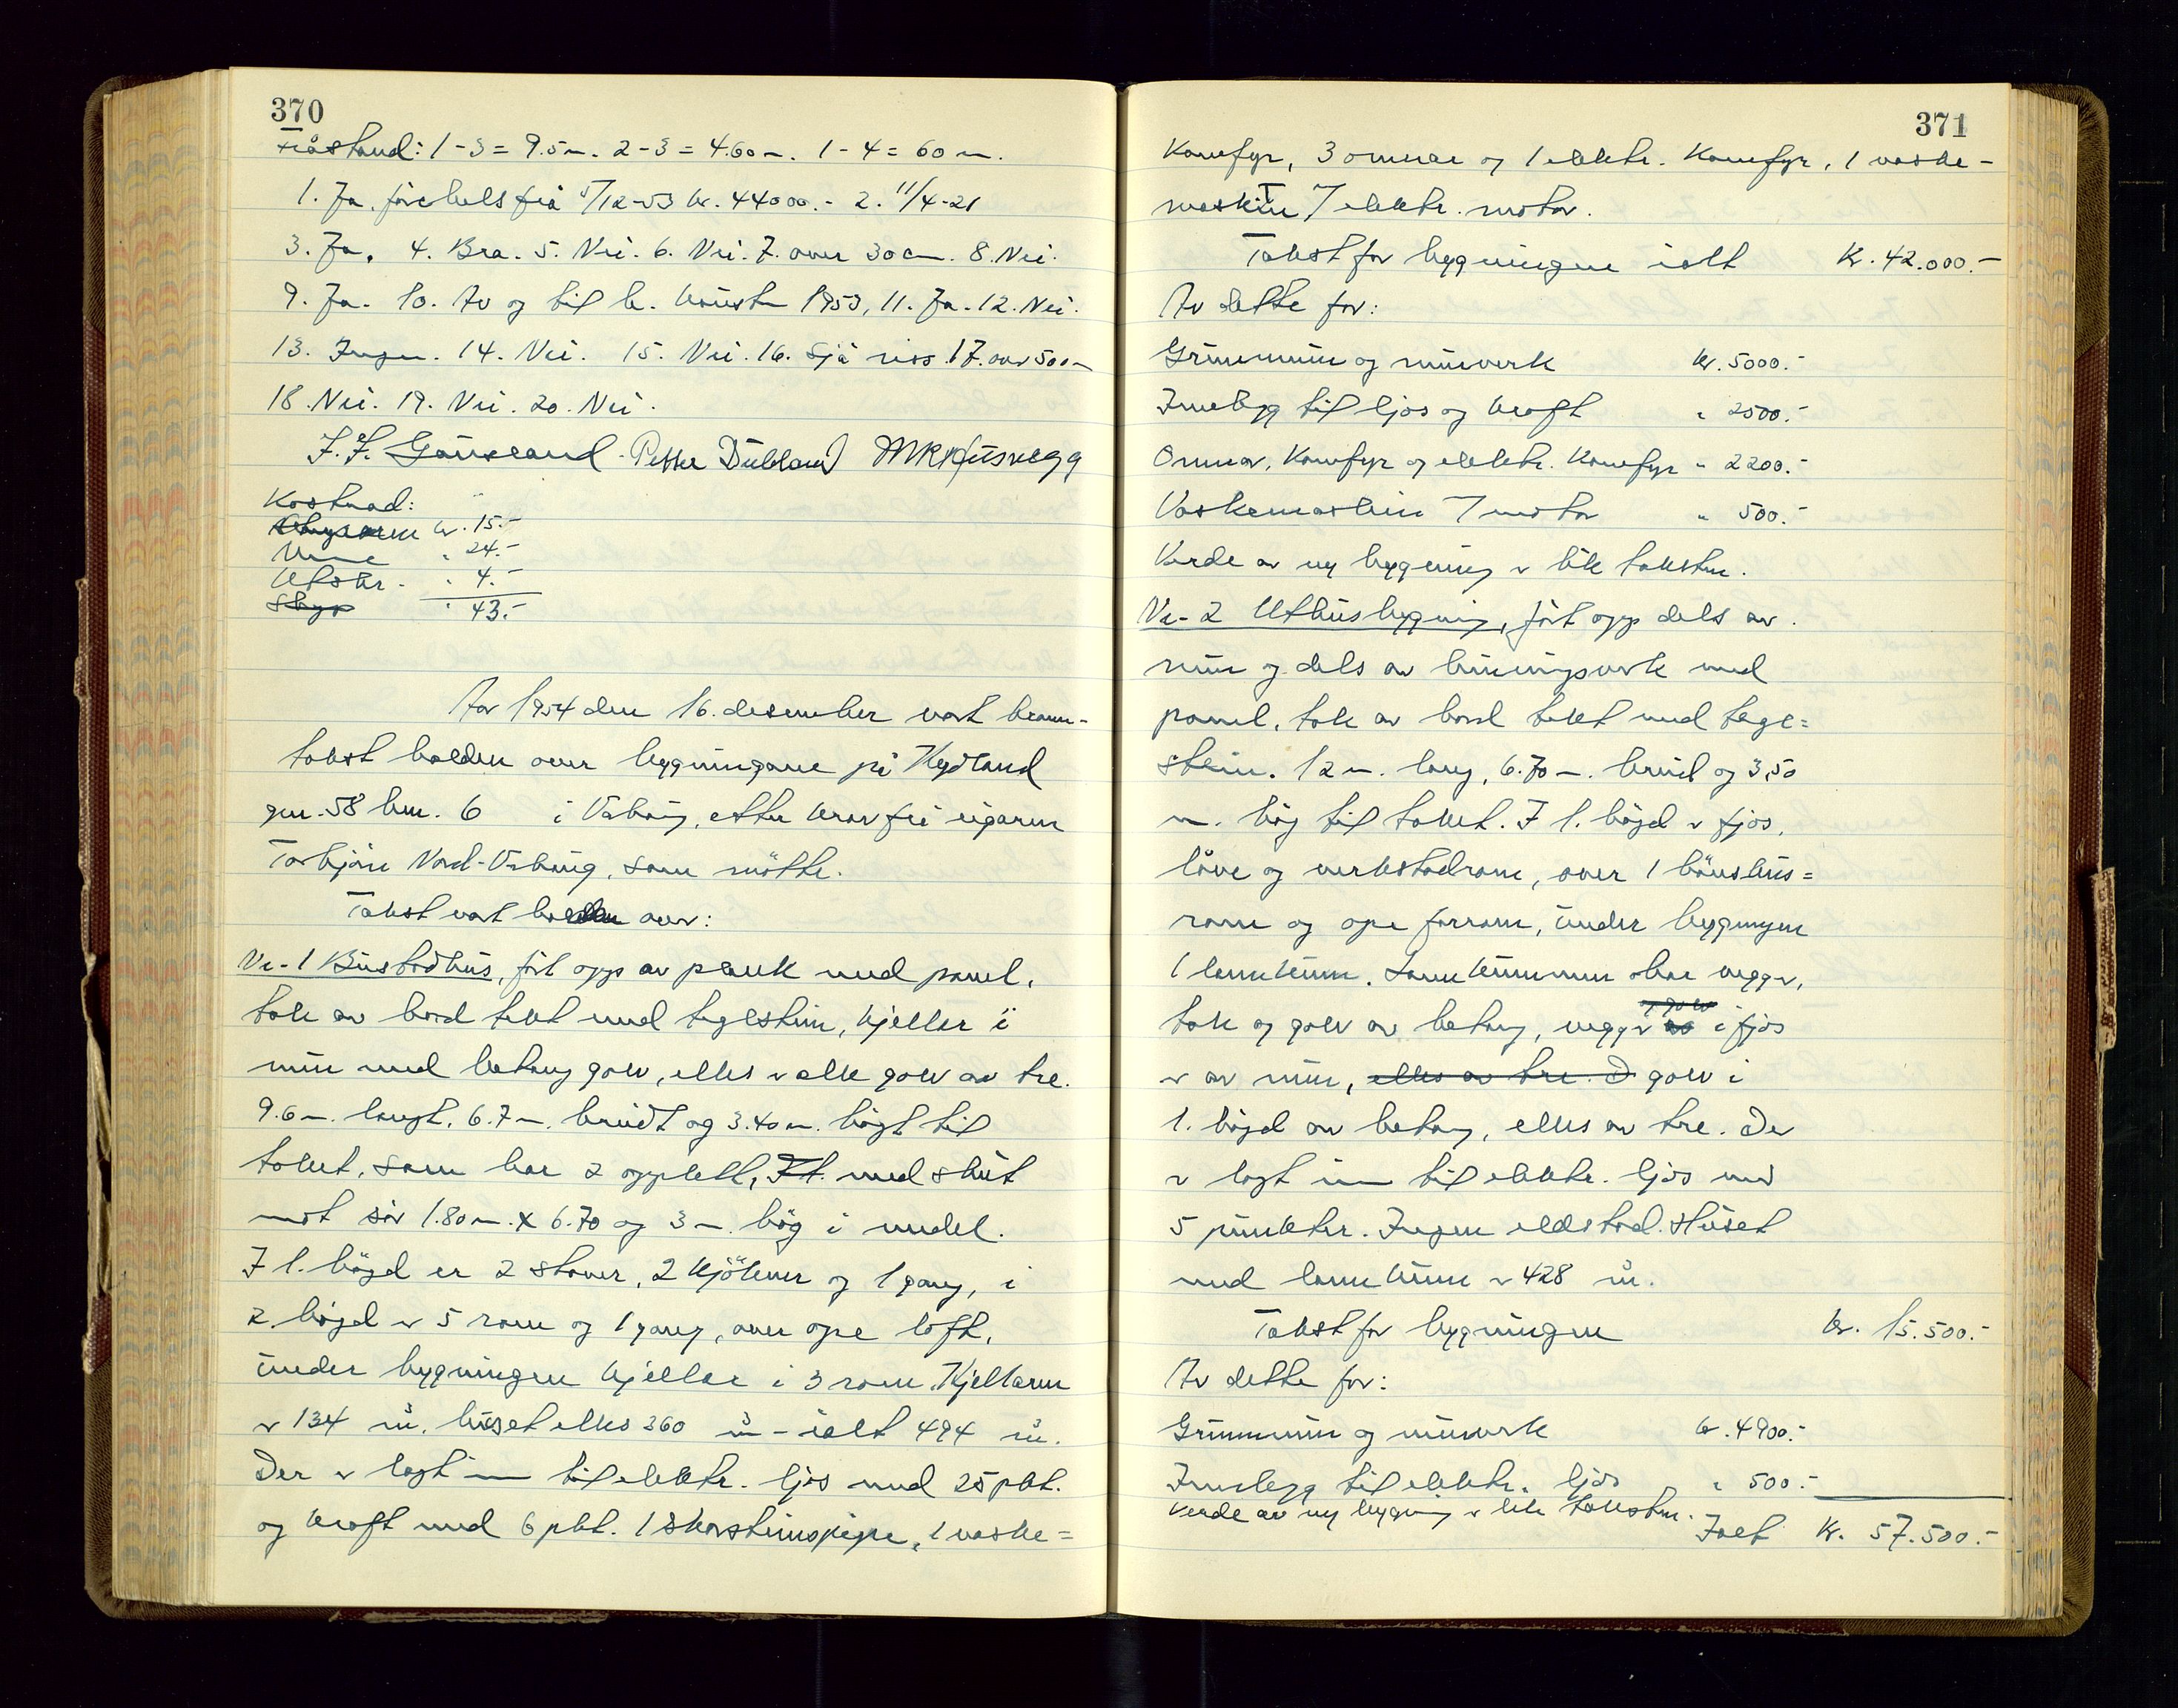 370
Fråstand: 1-3 = 9.5 m. 2-3 = 4.60 m. 1-4 = 60 m.
1. Ja. förebels frå 5/12-53 kr. 44000.- 2. 11/4-21
3. Ja. 4. Bra. 5. Nei. 6. Nei. 7. over 30 cm. 8. Nei.
9. Ja. 10. Av og til b. hausten 1953, 11. Ja. 12. Nei.
13. Ingen. 14. Nei. 15. Nei. 16. Sjå riss. 17. over 500 m
18. Nei. 19. Nei. 20. Nei.
J. J. Gauseland Petter Dübland
Kostnad:
kr. 15.-
" 24.-
Utskr. " 4.-
Skys " 43.-
Aar 1954 den 16. desember vart brann-
takst halden over bygningane på Hydland
gnr. 58 bnr. 6 i Varhaug, etter krav frå eigaren
Torbjörn Nord-Varhaug, som mötte.
Takst vart halden over:
Nr-1 Büstadhüs, fört opp av plank med panel,
tak av bord tekt med teglstein, kjellar i
mür med betong golv, elles er alle golv av tre.
9.6 m. langt, 6.7 m. breidt og 3.40 m. högt til
taket, som har 2 opplett, It. med skut
mot sör 1.80 m. x 6.70 og 3 m. hög i medel.
I 1. högd er 2 stover, 2 kjökener og 1 gang, i
2 högd er 5 rom og 1 gang, over ope loft,
ünder bygningen kjellar i 3 rom. Kjellaren
er 134 m³. hüset elles 360 m³ - ialt 494 m³.
Der er lagt inn til elektr. ljos med 25 pkt.
og kraft med 6 pkt. 1 skorsteinspipe, 1 vaske=
371
Komfyr, 3 omnar og 1 elektr. Komfyr, 1 vaske-
maskin m/ elektr. motor.
Takst for bygningen ialt Kr. 42.000.-
Av dette for:
Grünnmür og mürverk kr. 5000.-
Innlegg til ljos og kraft " 2500.-
Omnar, Komfyr og elektr. Komfyr " 2200.-
Vaskemaskin m/ motor " 500.-
Verde av ny bygning er lik taksten.
Nr-2 Uthüsbygning, fört opp dels av
mür og dels av bindingsverk med
panel, tak av bord tekt med tegl=
stein. 12 m. lang, 6.70 m. breid og 3,50
m. hög til taket. I 1. högd er fjos,
låve og verkstadrom, over 1 hönsehüs=
rom og ope forrom, ünder bygningen
1 lannkum. Lannkummen har vegger,
tak og golv av betong, vegger og golv i fjos
er av mür, elles av tre. D golv i
1. högd av betong, elles av tre. Der
er lagt inn til elektr. ljos med
5 pünkter. Ingen eldstad. Hüset
med lannkum er 428 m³.
Takst for bygningen kr. 15.500.-
Av dette for:
Grünnmür og mürverk kr. 4900.-
Innlegg til elektr. ljos " 500.-
Verde av ny bygning er lik taksten.
Ialt Kr. 57.500.-